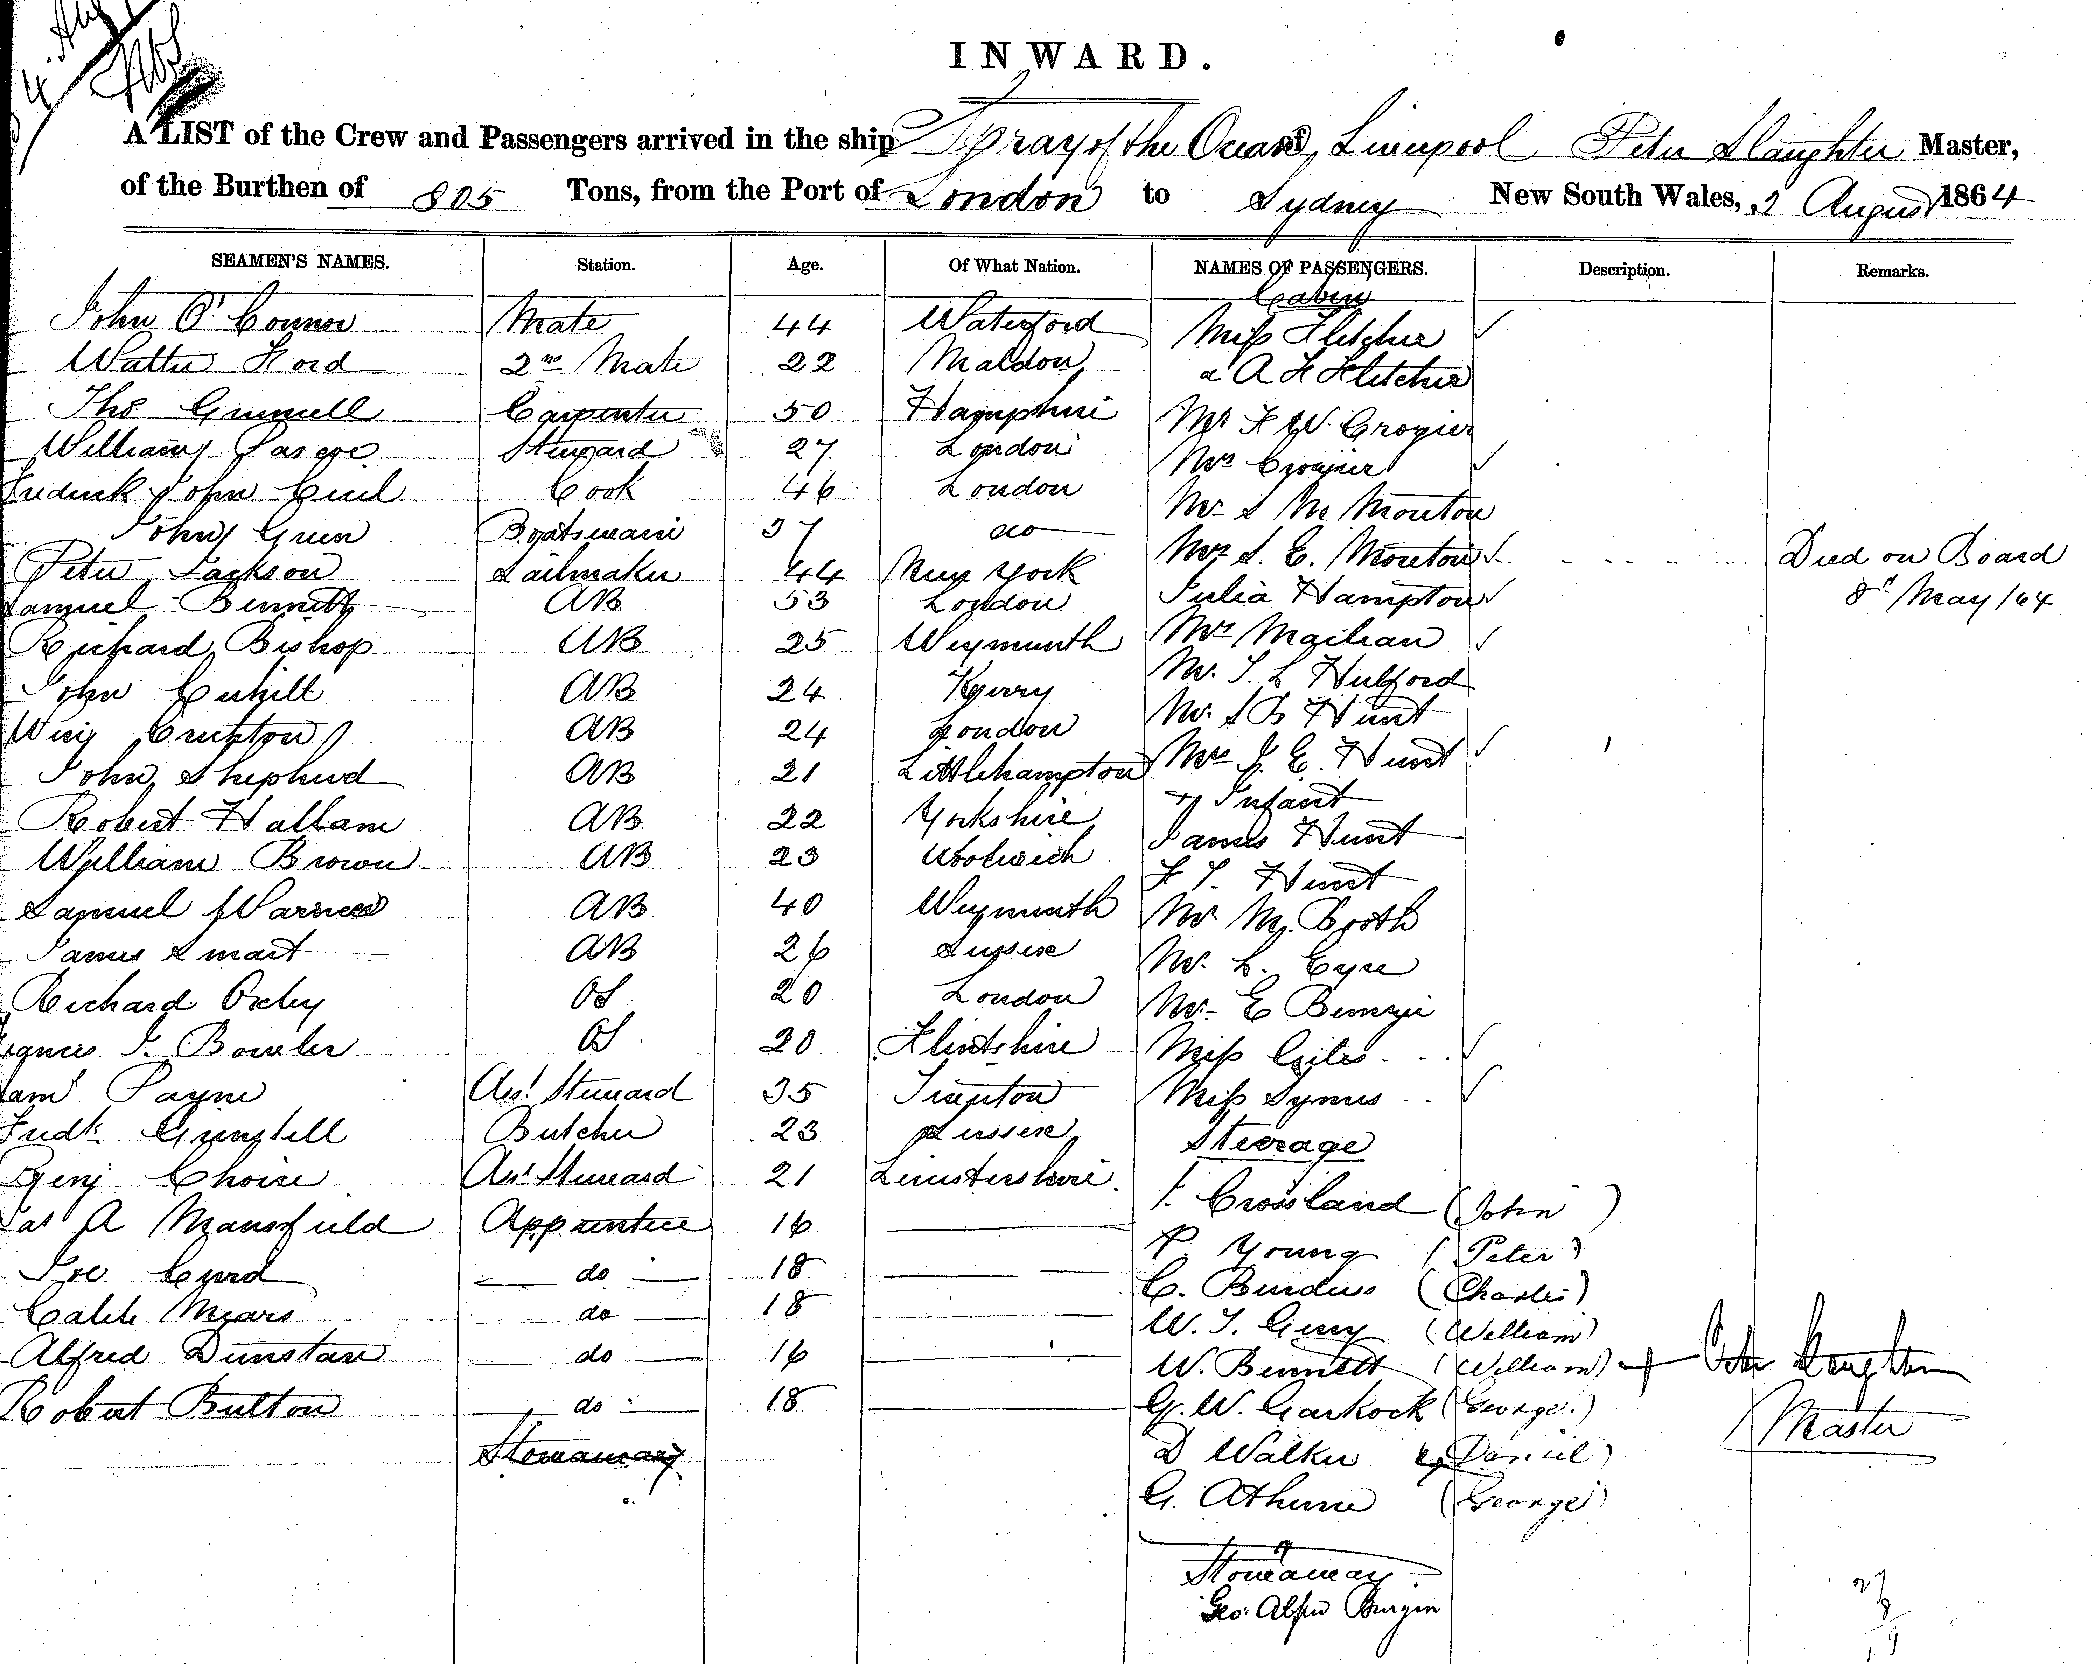 INWARD.
A LIST of the Crew and Passengers arrived in the ship Spray of the Ocean of Liverpool Peter Slaughter Master,
of the Burthen of 805 Tons, from the Port of London to Sydney New South Wales, 2 August 1864
SEAMEN'S NAMES. Station. Age. Of What Nation. NAMES OF PASSENGERS. Description. Remarks.
Cabin
John O'Connor Mate 44 Waterford Miss Fletcher
Walter Ford 2nd Mate 22 Maldon & A F Fletcher
Thos Grinnell Carpenter 50 Hampshire Mr F W. Crozier
William Pascoe Steward 27 London Mrs Crozier
Frederick John Cecil Cook 46 London Mr S M Mouton
John Green Boatswain 37 do Mrs S. E. Mouton Died on Board
Peter Jackson Sailmaker 44 New York Julia Hampton 8th May /64
Samuel Bennett AB 53 London
Richard Bishop AB 25 Weymouth Mrs
John AB 24 Kerry Mr. T. L Hulford
Wm AB 24 London Mr. S B Hunt
John Shepherd AB 21 Littlehampton Mrs J. E. Hunt
& Infant
Robert Hallam AB 22 Yorkshire James Hunt
William Brown AB 23 Woolwich F T. Hunt
Samuel Warner AB 40 Weymouth Mr M. Booth
James Smart AB 26 Sussex Mr. L. Eyre
Richard Oxley OS 20 London Mr E
Francis J. Bowler OS 20 Flintshire Miss Giles
Saml Payne Asst Steward 35 Miss Symes
Fredk Butcher 23 Sussex Steerage
Benj Choice Asst Steward 21 Leicestershire J. Crossland (John)
Jas A Mansfield Apprentice 16 P. Young (Peter)
Joe Curd do 18 C. Burdess (Charles)
Caleb Mears do 18 W. J. (William)
Alfred Dunstan do 16 W. Bennett (William) Peter Slaughter
Robert Bulton do 18 G. W. (George) Master
Stowaway D Walker (Daniel)
G. (George)
Stowaway
Geo: Alfred Burgin